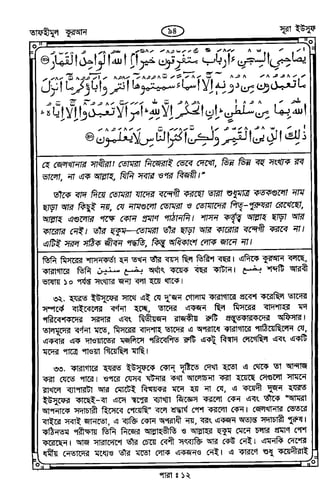 তাফহীমুল কুরআন
৯৪
সূরা ইউসুফ
يٰصَاحِبَيِ السِّجْنِ ءَاَرْبَابٌ مُّتَفَرِّقُوْنَ خَيْرٌ اَمِ اللّٰهُ الْوَاحِدُ الْقَهَّارُ ﴿٣٩﴾
مَا تَعْبُدُوْنَ مِنْ دُوْنِهٖٓ اِلَّآ اَسْمَآءً سَمَّيْتُمُوْهَآ اَنْتُمْ وَاٰبَآؤُكُمْ مَّآ اَنْزَلَ
اللّٰهُ بِهَا مِنْ سُلْطٰنٍ ؕ اِنِ الْحُكْمُ اِلَّا لِلّٰهِ ؕ اَمَرَ اَلَّا تَعْبُدُوْٓا اِلَّآ اِيَّاهُ ؕ
ذٰلِكَ الدِّيْنُ الْقَيِّمُ وَلٰكِنَّ اَكْثَرَ النَّاسِ لَا يَعْلَمُوْنَ ﴿٤٠﴾
হে জেলখানার সাথীরা! তোমরা নিজেরাই ভেবে দেখো, ভিন্ন ভিন্ন বহু সংখ্যক রব
ভালো, না এক আল্লাহ, যিনি সবার ওপর বিজয়ী।"
তাঁকে বাদ দিয়ে তোমরা যাদের বন্দেগী করছো তারা শুধুমাত্র কতকগুলো নাম
ছাড়া আর কিছুই নয়, যে নামগুলো তোমরা ও তোমাদের পিতৃ-পুরুষরা রেখেছো,
আল্লাহ এগুলোর পক্ষে কোন প্রমাণ পাঠাননি। শাসন কর্তৃত্ব আল্লাহ ছাড়া আর
কারোর নেই। তাঁর হুকুম—তোমরা তাঁর ছাড়া আর কারোর বন্দেগী করবে না।
এটিই সরল সঠিক জীবন পদ্ধতি, কিন্তু অধিকাংশ লোক জানে না।
মিসরের শাসনকর্তা হন তখন তাঁর বয়স ছিল তিরিশ বছর। এদিকে কুরআন বলছে,
কারাগারে তিনি بضع سنين অর্থাৎ কয়েক বছর কাটান। بضع শব্দটি আরবী
ভাষায় ১০ পর্যন্ত সংখ্যার জন্য বলা হয়ে থাকে।
৩২. হযরত ইউসুফের সাথে এই যে দু'জন গোলাম কারাগারে প্রবেশ করেছিল তাদের
সম্পর্কে বাইবেলের বর্ণনা হচ্ছে, তাদের একজন ছিল মিসরের বাদশাহর মদ
পরিবেশকদের সরদার এবং দ্বিতীয়জন রাজকীয় রুটি প্রস্তুতকারকদের অফিসার।
তালমূদের বর্ণনা মতে, মিসরের বাদশাহ তাদের এ অপরাধে কারাগারে পাঠিয়েছিলেন যে,
একবার এক দাওয়াতের মজলিসে পরিবেশিত রুটি একটু বিস্বাদ লেগেছিল এবং একটি
মদের পাত্রে পাওয়া গিয়েছিল মাছি।
৩৩. কারাগারে হযরত ইউসুফকে কোন্ দৃষ্টিতে দেখা হতো এ থেকে তা আন্দাজ
করা যেতে পারে। ওপরে যেসব ঘটনার কথা আলোচনা করা হয়েছে সেগুলো সামনে
রাখলে ব্যাপারটা আর মোটেই বিস্ময়কর মনে হয় না যে, এ কয়েদী দু'জন হযরত
ইউসুফের কাছেই-বা এসে স্বপ্নের ব্যাখ্যা জিজ্ঞেস করলো কেন এবং তাঁকে "আমরা
আপনাকে সদাচারী হিসেবে পেয়েছি" বলে শ্রদ্ধার্ঘ পেশ করলো কেন। জেলখানার ভেতরে
বাইরে সবাই জানতো, এ ব্যক্তি কোন অপরাধী নয়, বরং একজন অত্যন্ত সদাচারী পুরুষ।
কঠিনতম পরীক্ষায় তিনি নিজের আল্লাহভীতি ও আল্লাহর হুকুম মেনে চলার প্রমাণ পেশ
করেছেন। আজ সারাদেশে তাঁর চেয়ে বেশী সৎব্যক্তি আর কেউ নেই। এমনকি দেশের
ধর্মীয় নেতাদের মধ্যেও তাঁর মতো লোক একজনও নেই। এ কারণে শুধু কয়েদীরাই
পারা : ১২